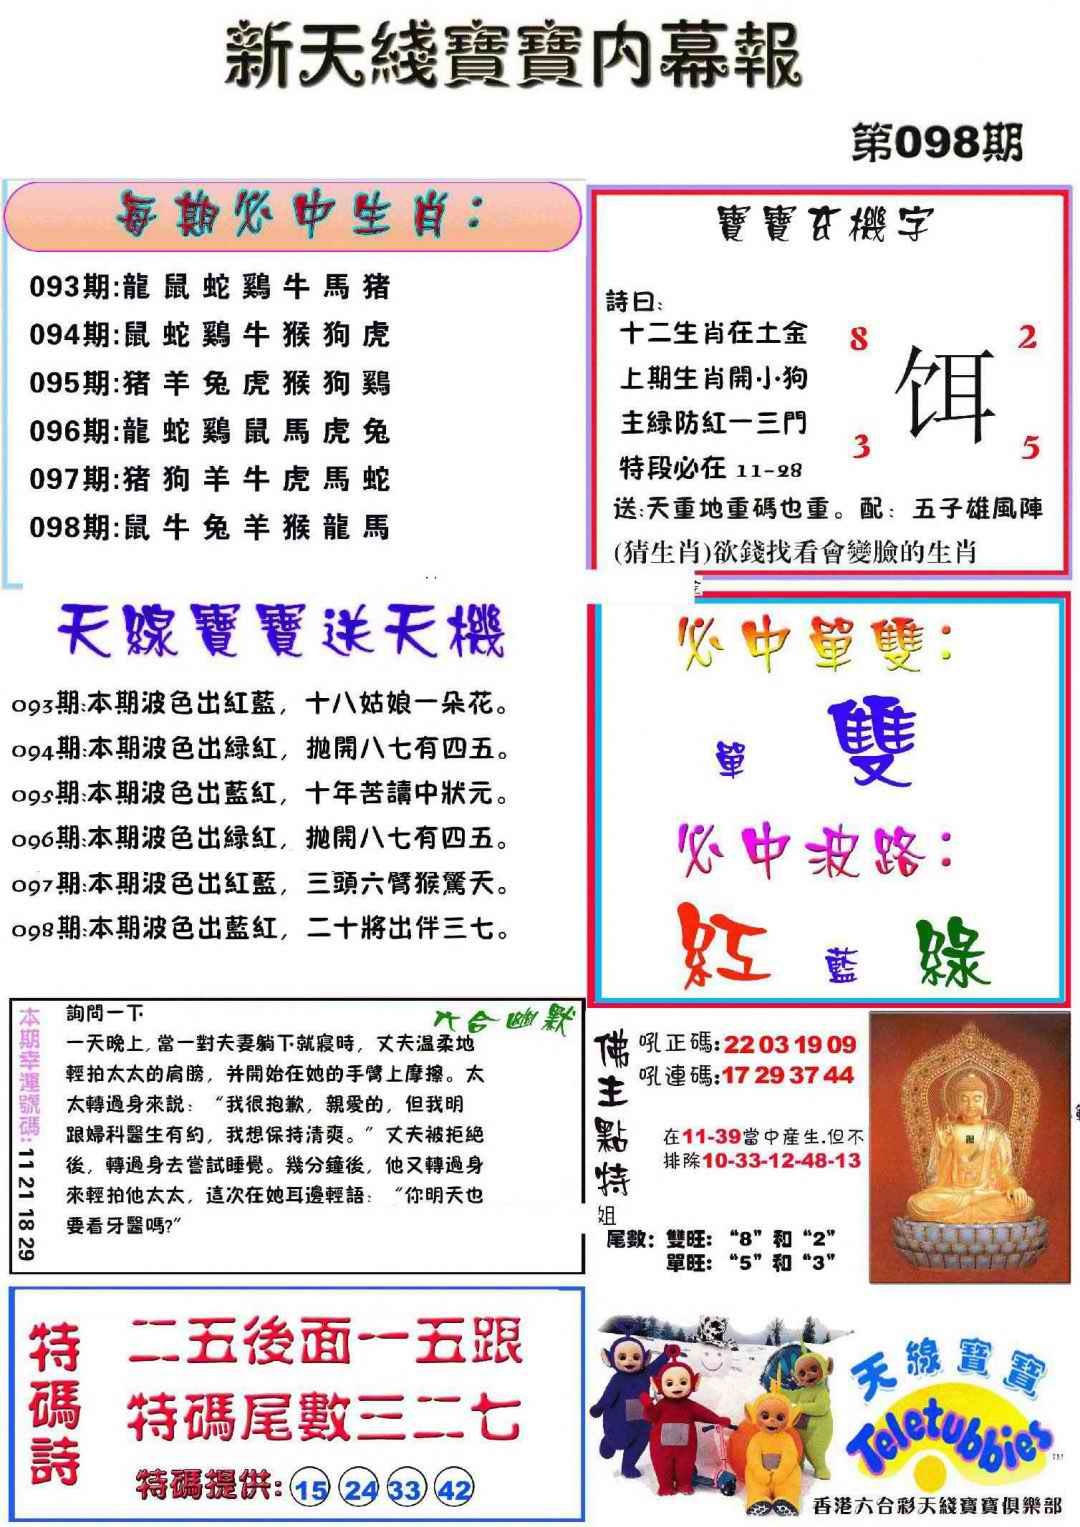 新天綫寶寶内幕報
第098期
每期必中生肖：
093期:龍 鼠 蛇 鷄 牛 馬 猪
094期:鼠 蛇 鷄 牛 猴 狗 虎
095期:猪 羊 兔 虎 猴 狗 鷄
096期:龍 蛇 鷄 鼠 馬 虎 兔
097期:猪 狗 羊 牛 虎 馬 蛇
098期:鼠 牛 兔 羊 猴 龍 馬
寶寶玄機字
詩曰:
十二生肖在土金
上期生肖開小狗
主緑防紅一三門
特段必在 11-28
8 2
饵
3 5
送:天重地重碼也重。配：五子雄風陣
(猜生肖)欲錢找看會變臉的生肖
天線寶寶送天機
093期:本期波色出紅藍，十八姑娘一朵花。
094期:本期波色出緑紅，抛開八七有四五。
095期:本期波色出藍紅，十年苦讀中狀元。
096期:本期波色出緑紅，抛開八七有四五。
097期:本期波色出紅藍，三頭六臂猴驚天。
098期:本期波色出藍紅，二十將出伴三七。
必中單雙：
單 雙
必中波路：
紅 藍 綠
本期幸運號碼: 11 21 18 29
六合幽默
詢問一下
一天晚上，當一對夫妻躺下就寢時，丈夫温柔地
輕拍太太的肩膀，并開始在她的手臂上摩擦。太
太轉過身來説：“我很抱歉，親愛的，但我明
跟婦科醫生有約，我想保持清爽。”丈夫被拒絶
後，轉過身去嘗試睡覺。幾分鐘後，他又轉過身
來輕拍他太太，這次在她耳邊輕語：“你明天也
要看牙醫嗎?”
佛主點特
姐
吼正碼:22 03 19 09
吼連碼:17 29 37 44
在11-39當中産生.但不
排除10-33-12-48-13
尾數：雙旺：“8”和“2”
單旺：“5”和“3”
特碼詩
二五後面一五跟
特碼尾數三二七
特碼提供: 15 24 33 42
天線寶寶
Teletubbies
TM
香港六合彩天綫寶寶俱樂部